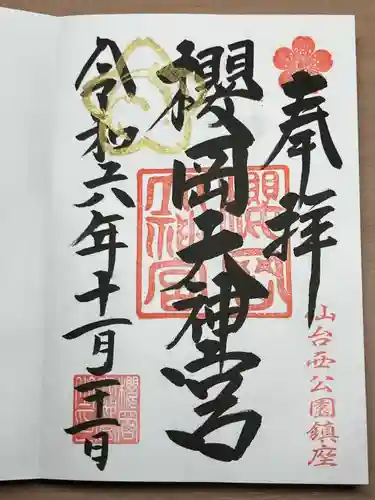 奉拝
仙台西公園鎮座
櫻岡大神宮
櫻岡大神宮
令和六年十一月二十一日